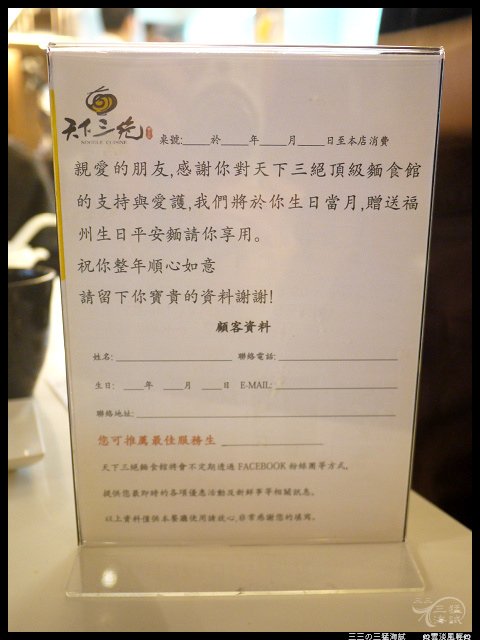 天下三絕
NOODLE CUISINE
桌號:____於____年____月____日至本店消費
親愛的朋友,感謝你對天下三絕頂級麵食館
的支持與愛護,我們將於你生日當月,贈送福
州生日平安麵請你享用。
祝你整年順心如意
請留下你寶貴的資料謝謝!
顧客資料
姓名:____ 聯絡電話:____
生日: ____年 ____月 ____日 E-MAIL:____
聯絡地址:____
您可推薦最佳服務生____
天下三絕麵食館將會不定期透過 FACEBOOK 粉絲團等方式,
提供您最即時的各項優惠活動及新鮮事等相關訊息。
以上資料僅供本餐廳使用請放心,非常感謝您的填寫。
三三の三猛海賊
雲淡風輕